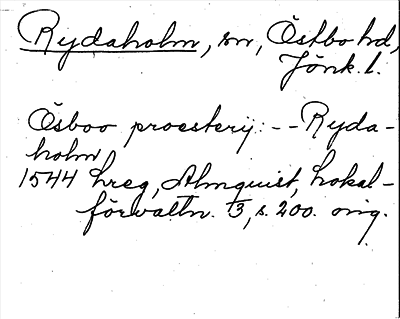 Rydaholm, sn, Östbo hd,
Jönk. l.
Ösboo proesterij: -- Ryda-
holm
1544 hreg, Almquist, Lokal-
förvaltn. 3, s. 200. orig.